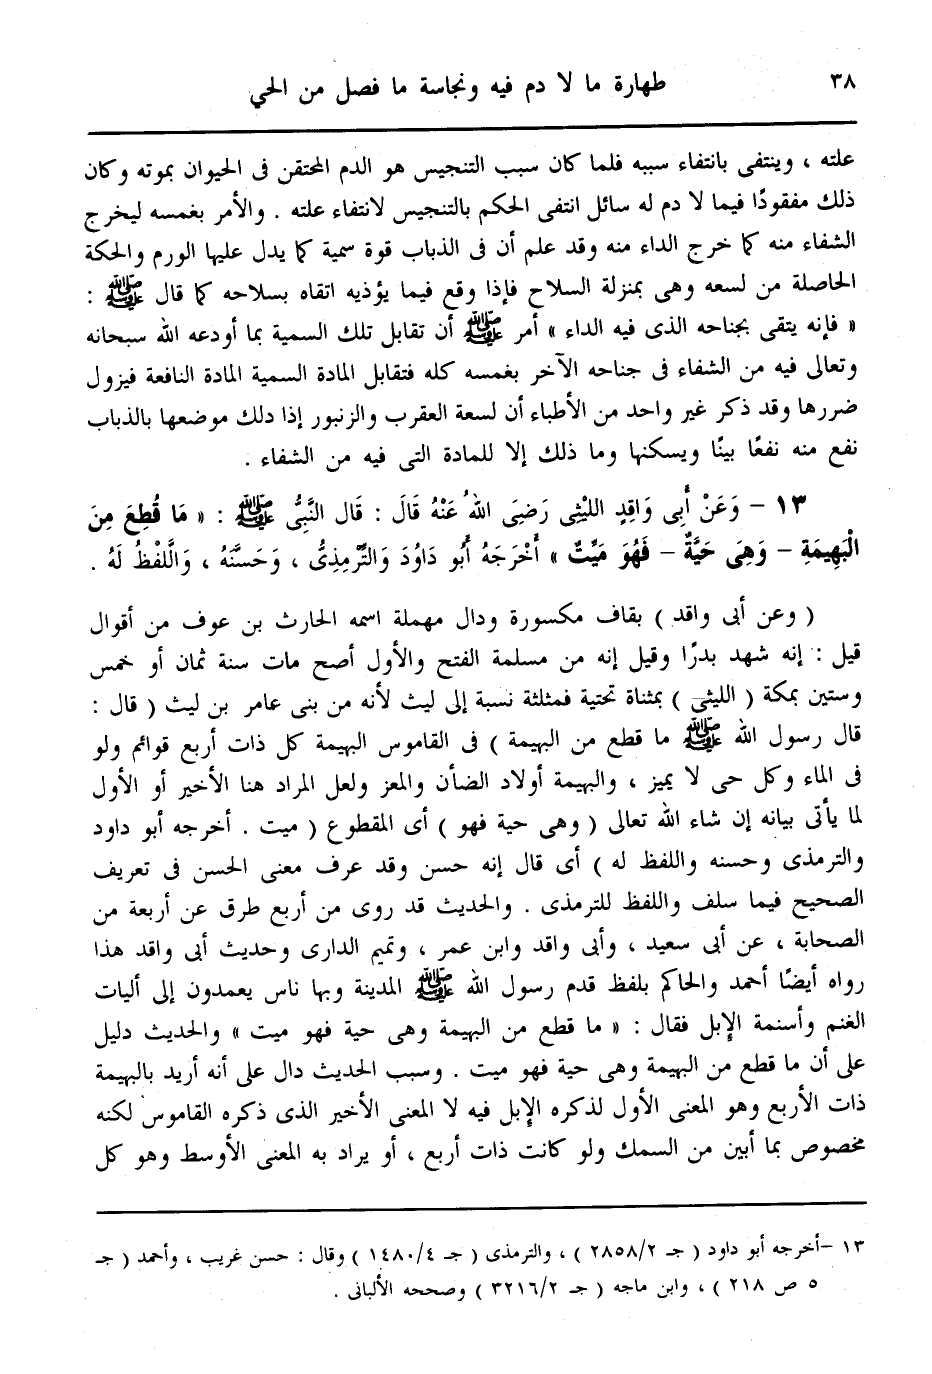 ٣٨
طهارة ما لا دم فيه ونجاسة ما فصل من الحي
علته ، وينتفى بانتفاء سببه فلما كان سبب التنجيس هو الدم المحتقن فى الحيوان بموته وكان
ذلك مفقودًا فيما لا دم له سائل انتفى الحكم بالتنجيس لانتفاء علته . والأمر بغمسه ليخرج
الشفاء منه كما خرج الداء منه وقد علم أن فى الذباب قوة سمية كما يدل عليها الورم والحكة
الحاصلة من لسعه وهى بمنزلة السلاح فإذا وقع فيما يؤذيه اتقاه بسلاحه كما قال ﷺ :
« فإنه يتقى بجناحه الذى فيه الداء » أمر ﷺ أن تقابل تلك السمية بما أودعه الله سبحانه
وتعالى فيه من الشفاء فى جناحه الآخر بغمسه كله فتقابل المادة السمية المادة النافعة فيزول
ضررها وقد ذكر غير واحد من الأطباء أن لسعة العقرب والزنبور إذا دلك موضعها بالذباب
نفع منه نفعًا بينًا ويسكنها وما ذلك إلا للمادة التى فيه من الشفاء .
١٣ – وَعَنْ أَبِى وَاقِدٍ الليْثِى رَضِىَ اللهُ عَنْهُ قَالَ : قَال النَّبِىُّ ﷺ : « مَا قُطِعَ مِنَ
الْبَهِيمَةِ – وَهِىَ حَيَّةٌ – فَهُوَ مَيِّتٌ » أَخْرَجَهُ أَبُو دَاوُدَ وَالتِّرْمِذِىُّ ، وَحَسَّنَهُ ، وَالَّلفْظُ لَهُ .
( وعن أبى واقد ) بقاف مكسورة ودال مهملة اسمه الحارث بن عوف من أقوال
قيل : إنه شهد بدرًا وقيل إنه من مسلمة الفتح والأول أصح مات سنة ثمان أو خمس
وستين بمكة ( الليثى ) بمثناة تحتية فمثلثة نسبة إلى ليث لأنه من بنى عامر بن ليث ( قال :
قال رسول الله ﷺ ما قطع من البهيمة ) فى القاموس البهيمة كل ذات أربع قوائم ولو
فى الماء وكل حى لا يميز ، والبهيمة أولاد الضأن والمعز ولعل المراد هنا الأخير أو الأول
لما يأتى بيانه إن شاء الله تعالى ( وهى حية فهو ) أى المقطوع ( ميت . أخرجه أبو داود
والترمذى وحسنه واللفظ له ) أى قال إنه حسن وقد عرف معنى الحسن فى تعريف
الصحيح فيما سلف واللفظ للترمذى . والحديث قد روى من أربع طرق عن أربعة من
الصحابة ، عن أبى سعيد ، وأبى واقد وابن عمر ، وتميم الدارى وحديث أبى واقد هذا
رواه أيضًا أحمد والحاكم بلفظ قدم رسول الله ﷺ المدينة وبها ناس يعمدون إلى أليات
الغنم وأسنمة الإبل فقال : « ما قطع من البهيمة وهى حية فهو ميت » والحديث دليل
على أن ما قطع من البهيمة وهى حية فهو ميت . وسبب الحديث دال على أنه أريد بالبهيمة
ذات الأربع وهو المعنى الأول لذكره الإبل فيه لا المعنى الأخير الذى ذكره القاموس لكنه
مخصوص بما أبين من السمك ولو كانت ذات أربع ، أو يراد به المعنى الأوسط وهو كل
١٣ –أخرجه أبو داود ( جـ ٢٨٥٨/٢ ) ، والترمذى ( جـ ١٤٨٠/٤ ) وقال : حسن غريب ، وأحمد ( جـ
٥ ص ٢١٨ ) ، وابن ماجه ( جـ ٣٢١٦/٢ ) وصححه الألبانى .